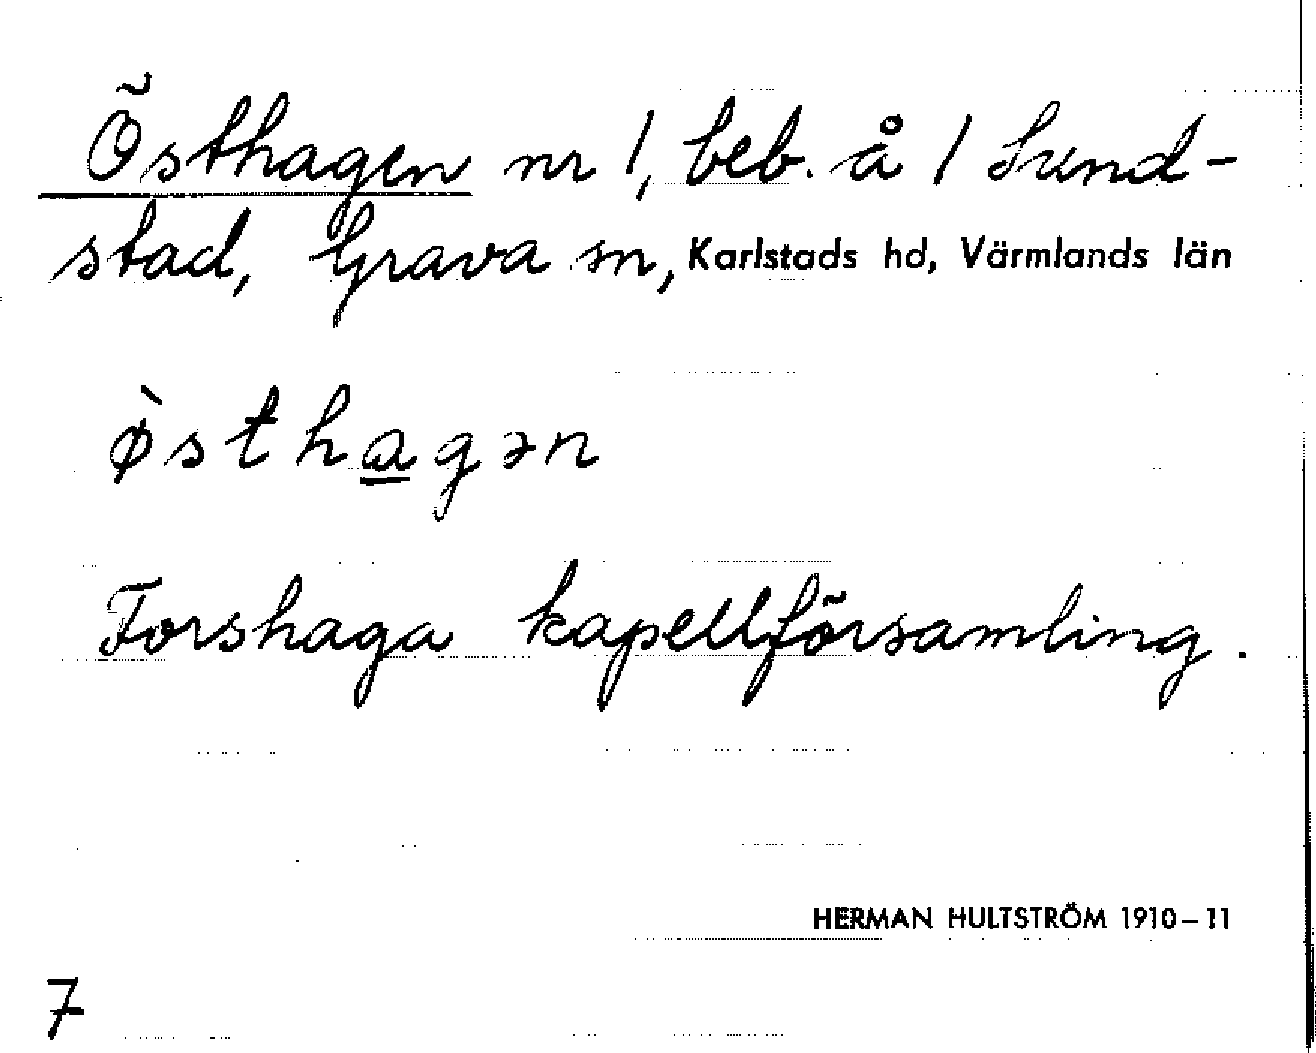 Östhagen nr 1, beb. å 1 Sund-
stad, Grava sn, Karlstads hd, Värmlands län
ø̀stha̲gən
Forshaga kapellförsamling.
HERMAN HULTSTRÖM 1910–11
7